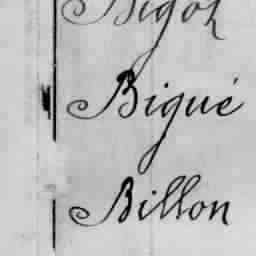 Bigot
Bigué
Billon